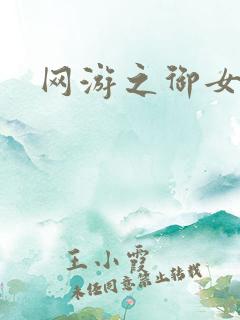 网游之御女
王小霞
未经同意禁止转载